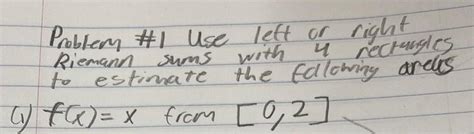 Problem #1 Use left or right
Riemann sums with 4 rectangles
to estimate the following areas
(1) f(x) = x from [0,2]